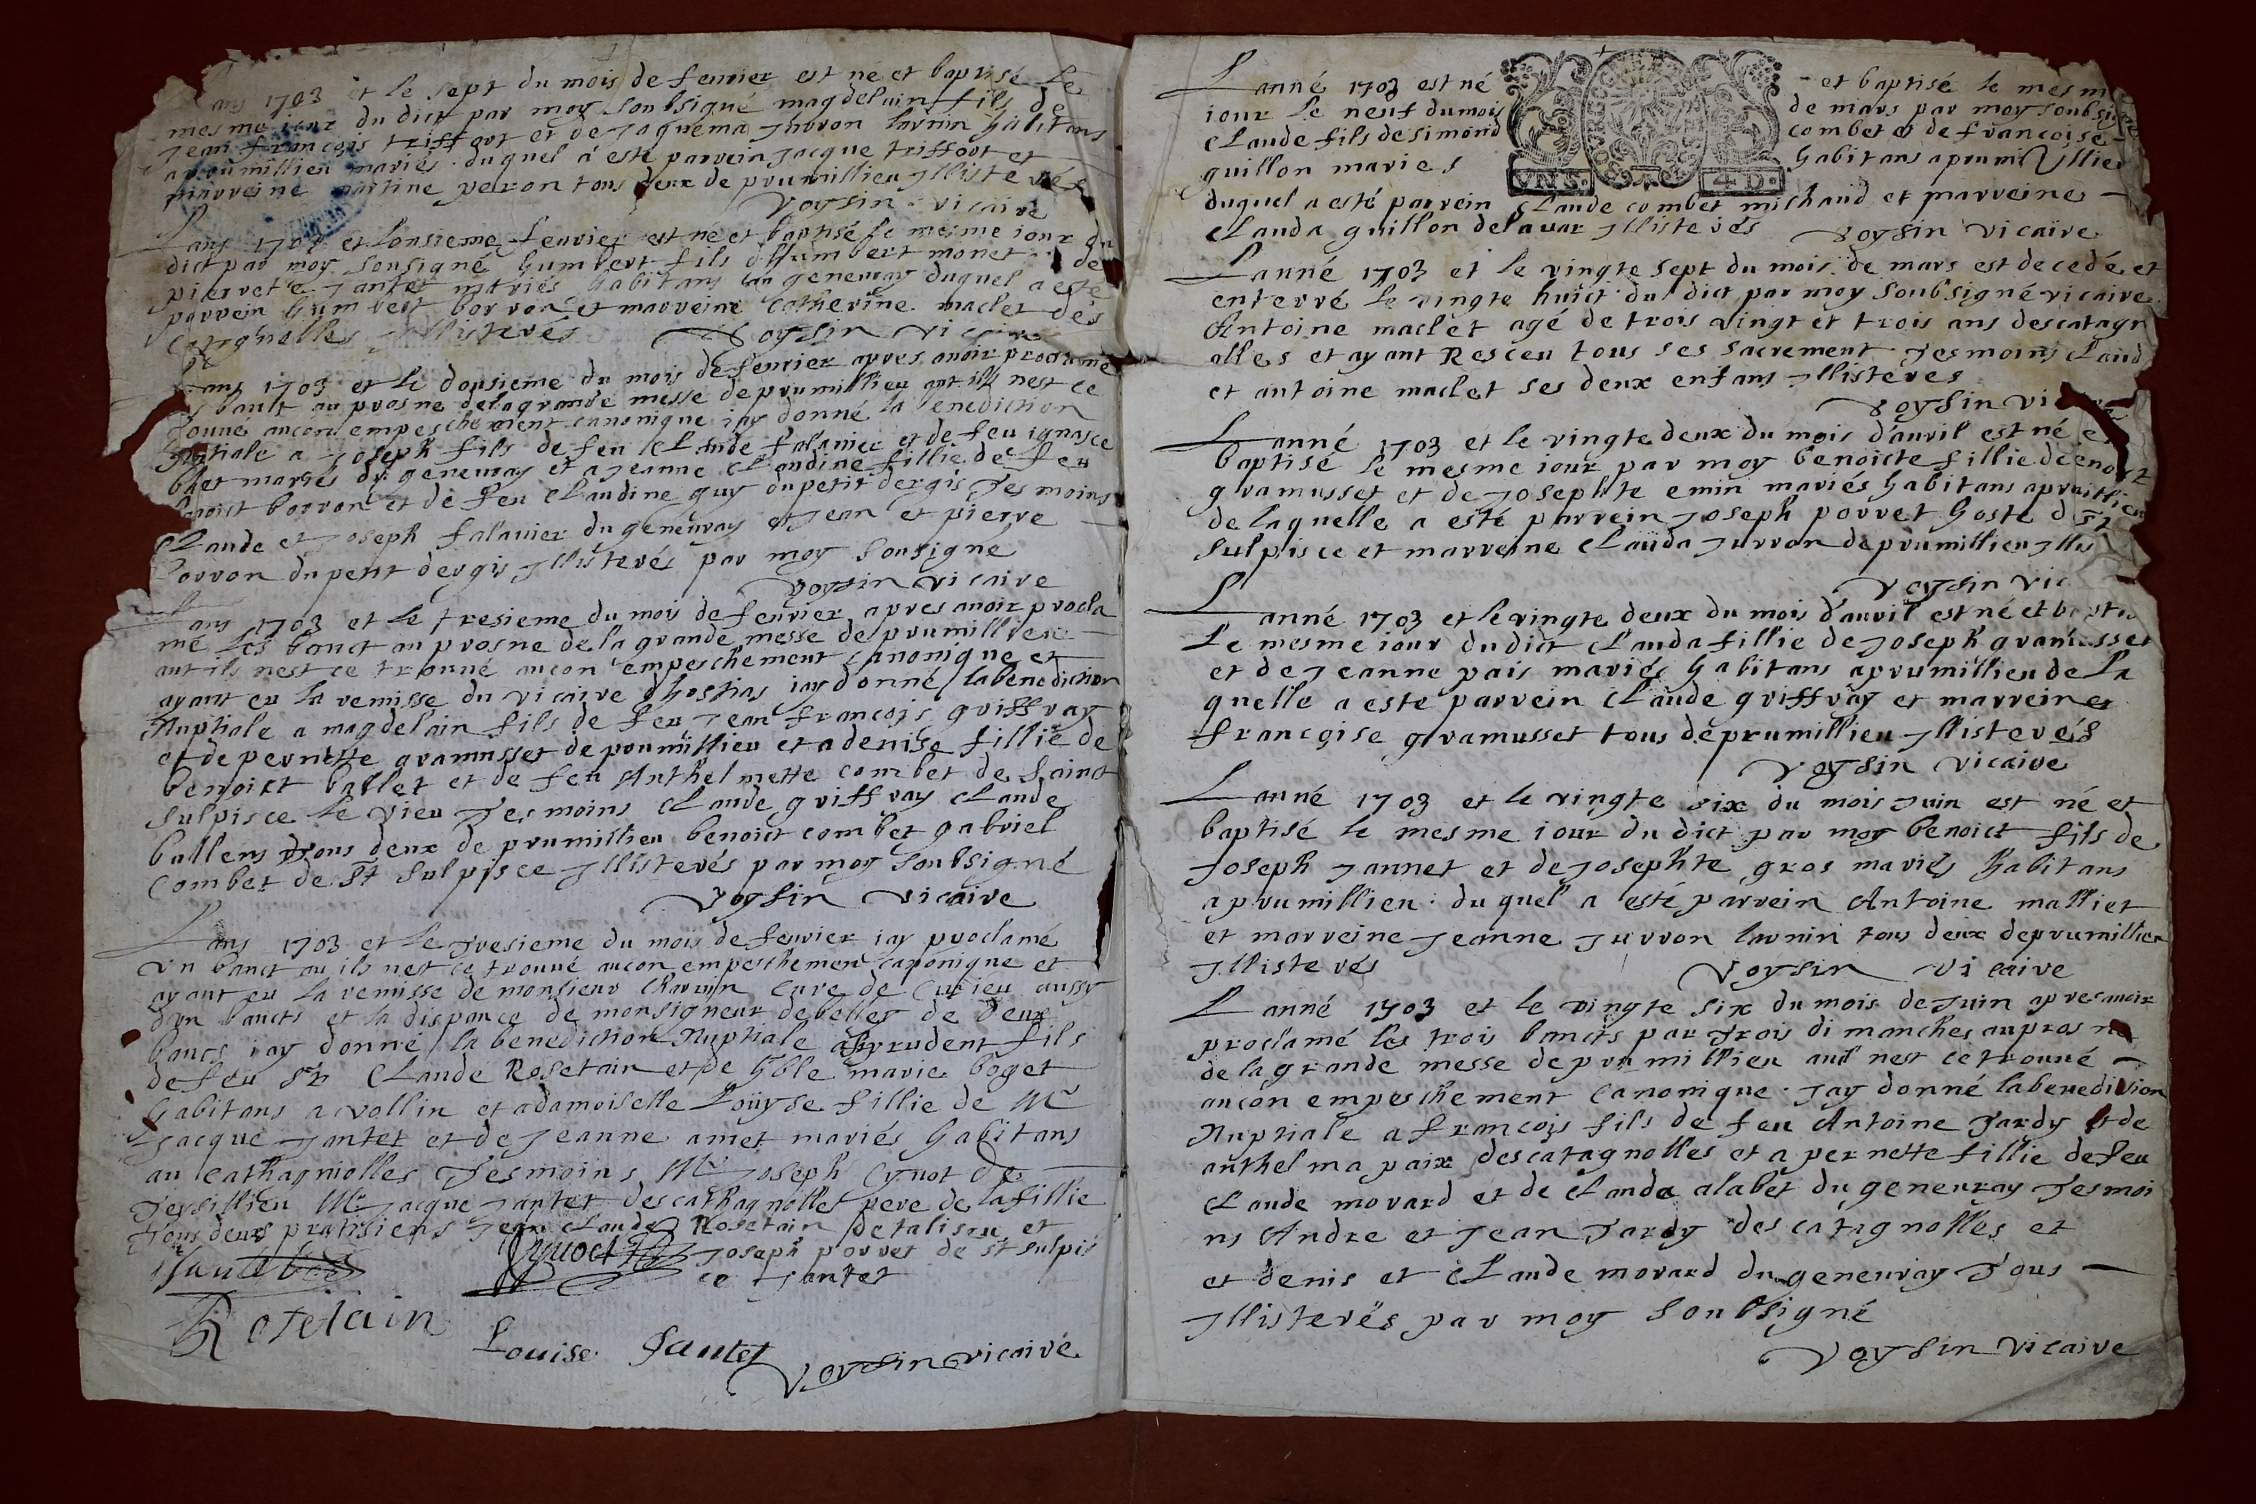 Lans 1703 et le sept du mois de feuvrier est né et baptisé le
mesme iour du dict par moy soubsigné magdelain fils de
Jean françois triffort et de Jaquema Juvron lavnin habitans
a prumillieu mariés duquel a esté parrein Jacque triffort et
marreine martine peron tous deux de prumillieu Jllisterés
Voysin vicaire
Lans 1703 et lonsieme feuvrier est né et baptisé le mesme iour du
dict par moy sousigné humbert fils dhumbert monet et de
pierrete Jantet mariés habitans au geneuray duquel a esté
parrein humbert borron et marreine Catherine maclet des
catagnolles Jllisterés Voysin vicaire
Lans 1703 et le dousieme du mois de feuvrier apres avoir proclamé
bault au prosne de la grande messe de prumillieu ant ils nest ce
trouué aucon empeschement canonique iay donné la benediction
Nuptiale a Joseph fils de feu Claude falauier et de feu ignasce
bket mariés du geneuray et a Jeanne Claudine fillie de feu
benoict borron et de feu Claudine guy du petit dergis Tesmoins
Claude et Joseph falauier du geneuray et Jean et pierre
borron du petit dergis Jllisterés par moy sousigné
Voysin vicaire
Lans 1703 et le tresieme du mois de feuvrier apres avoir procla
mé les banct au prosne de la grande messe de prumillieu
ant ils nest ce trouué aucon empeschement canonique et
ayant eu la remisse du vicaire dhostias iay donné la benediction
Nuptiale a magdelain fils de feu Jean françois griffray
et de pernette gramusset de prumillieu et a denise fillie de
benoict ballet et de feu Anthelmette combet de sainct
sulpisce le vieu Tesmoins Claude griffray Claude
ballem tous deux de prumillieu benoict combet gabriel
Combet de St sulpisce Jllisterés par moy soubsigné
Voysin vicaire
Lans 1703 et le tresieme du mois de feuvrier iay proclamé
vn banct au ils net ce trouué aucon empeschement canonique et
ayant eu la remisse de monsieur Charuin Cure de Cuzieu aussy
dun bancts et la dispance de monsigneur de belley de deux
bancs iay donné la benediction Nuptiale a prudent fils
de feu Sr Claude Rosetain et de hble marie boget
habitans a vollin et a damoiselle Loüyse fillie de Mr
Jacque Jantet et de Jeanne amet mariés habitans
au cathagniolles Tesmoins Mr Joseph Cynot de
Teysillieu Mr Jacque Jantet des cathagnolles pere de la fillie
Tous deux pratisiens Jean Claude Rosetain de talisieu et
Joseph porret de st sulpis
ce Jantet
Cynoct
Rosetain
Louise Jantet
Voysin vicaire
Lanné 1703 est né et baptisé le mesme
iour le neuf du mois de mars par moy soubsigné
Claude fils de simond combet et de françoise
guillon maries habitans a prumillieu
VNS. 4D.
duquel a esté parrein Claude combet michaud et marreine
Clauda guillon delauar Jllisterés Voysin vicaire
Lanné 1703 et le vingte sept du mois de mars est decedé et
enterré le vingte huict du dict par moy soubsigné vicaire
Antoine maclet agé de trois vingt et trois ans des catagn
olles et ayant Resceu tous ses sacrement Tesmoins Claud
et antoine maclet ses deux enfans Jllisteres
Voysin vicaire
Lanné 1703 et le vingte deux du mois d'auril est né et
baptisé le mesme iour par moy benoicte fillie de benoict
gramusset et de Josephte emin mariés habitans a prumillieu
de laquelle a esté parrein Joseph porret hoste de St
sulpisce et marreine Clauda Jurron de prumillieu Jllis
Voysin vic
Lanné 1703 et le vingte deux du mois d'auril est né et baptisé
Le mesme iour du dict Clauda fillie de Joseph gramusset
et de Jeanne pais mariés habitans a prumillieu de la
quelle a este parrein Claude griffray et marreine
françoise gramusset tous de prumillieu Jllisterés
Voysin vicaire
Lanné 1703 et le vingte six du mois Juin est né et
baptisé le mesme iour du dict par moy benoict fils de
Joseph Jannet et de Josephte gros mariés habitans
a prumillieu duquel a esté parrein Antoine malliet
et marreine Jeanne Jurron lavnin tous deux de prumillieu
Jllisterés Voysin vicaire
Lanné 1703 et le vingte six du mois de Juin apres auoir
proclamé les trois bancts par trois dimanches au prosne
de la grande messe de prumillieu ant nest ce trouué
aucon empeschement canonique Jay donné la benediction
Nuptiale a françois fils de feu Antoine Tardy et de
anthelma paix des catagnolles et a pernette fillie de feu
Claude morard et de Clauda alabet du geneuray Tesmoi
ns Andre et Jean Tardy des catagnolles et
et denis et Claude morard du geneuray Tous
Jllisterés par moy soubsigné
Voysin vicaire